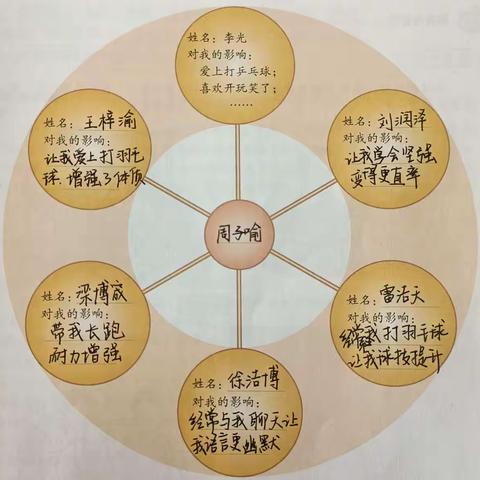 姓名：李光
对我的影响：
爱上打乒乓球；
喜欢开玩笑了；
……
姓名：王梓渝
对我的影响：
让我爱上打羽毛
球、增强了体质
姓名：刘润泽
对我的影响：
让我学会坚强
变得更直率
周子喻
姓名：梁博宬
对我的影响：
带我长跑
耐力增强
姓名：雷浩天
对我的影响：
经常我打羽毛球
让我球技提升
姓名：徐洁博
对我的影响：
经常与我聊天让
我语言更幽默